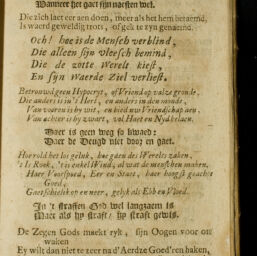 Wanneer het gaet sijn naesten wel.
Die zich laet eer aen doen, meer als het hem betaemd,
Is waerd geweldig trots, of gek te zyn genaemd.
Och! hoe is de Mensch verblind,
Die alleen sijn vleesch bemind,
Die de zotte Werelt kiest,
En sijn Waerde Ziel verliest.
Betrouwd geen Hypocryt, of Vriend op valsche gronde,
Die anders is in 't Hert, en anders in den monde.
Van vooren is hy wit, en bied uw Vriendschap aen,
Van achter is hy zwart, vol Haet en
Daer is geen weg so kwaed:
Daer de Deugd niet door en gaet.
Hoe rold het los geluk, hoe gaen des Werelts zaken,
't Is Rook, 't is enkel Wind, al wat de menschen maken.
Haer Voorspoed, Eer en Staet, haer hoogst geachte
Goed,
Gaet schielijk op en neer, gelyk als Ebb en Vloed.
In 't straffen God wel langzaem is
Maer als hy straft, hy straft gewis.
De Zegen Gods maekt ryk, sijn Oogen voor ons
waken
Ey wilt dan niet te zeer na d'Aerdze Goed'ren haken,